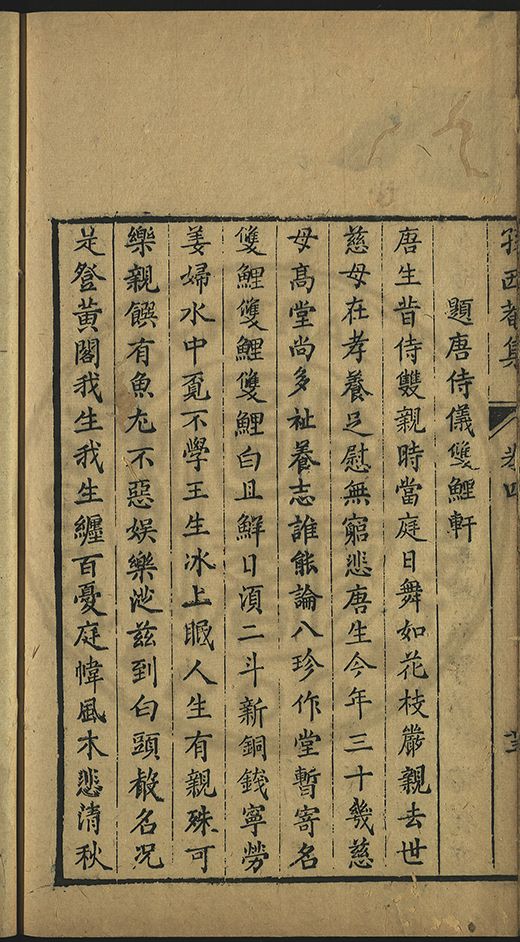 孫西菴集
卷四
題唐侍儀雙鯉軒
唐生昔侍雙親時當庭日舞如花枝嚴親去世
慈母在孝養足慰無窮悲唐生今年三十幾慈
母高堂尚多祉養志誰能論八珍作堂暫寄名
雙鯉雙鯉雙鯉白且鮮日湏二斗新銅錢寧勞
姜婦水中覓不學王生冰上眠人生有親殊可
樂親饌有魚尤不惡娛樂從茲到白頭名况
是登黃閣我生我生纏百憂庭幃風木悲清秋